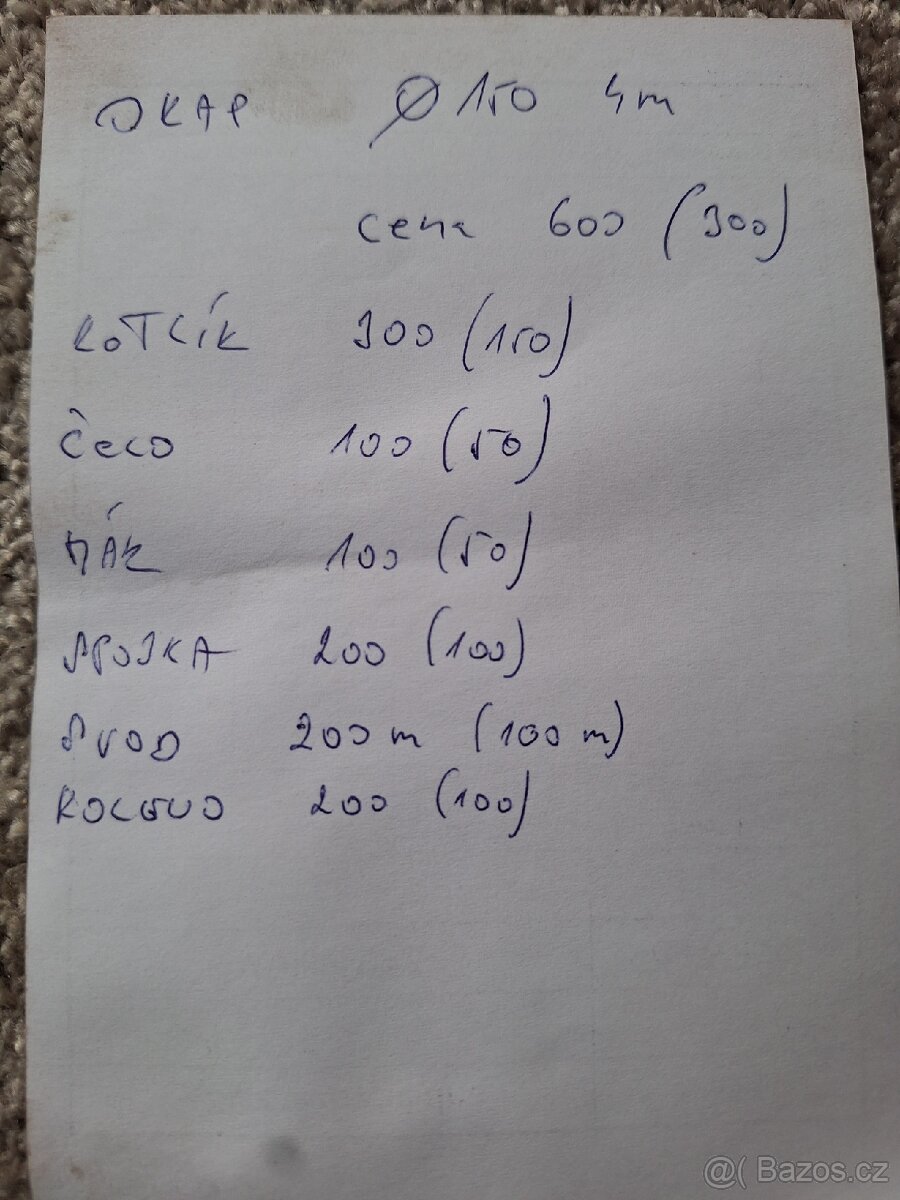 OKAP ⌀ 150 4m
cena 600 (300)
KOTLÍK 300 (150)
ČELO 100 (50)
HÁK 100 (50)
SPOJKA 200 (100)
SVOD 200 m (100 m)
KOLENO 200 (100)
@( Bazos.cz